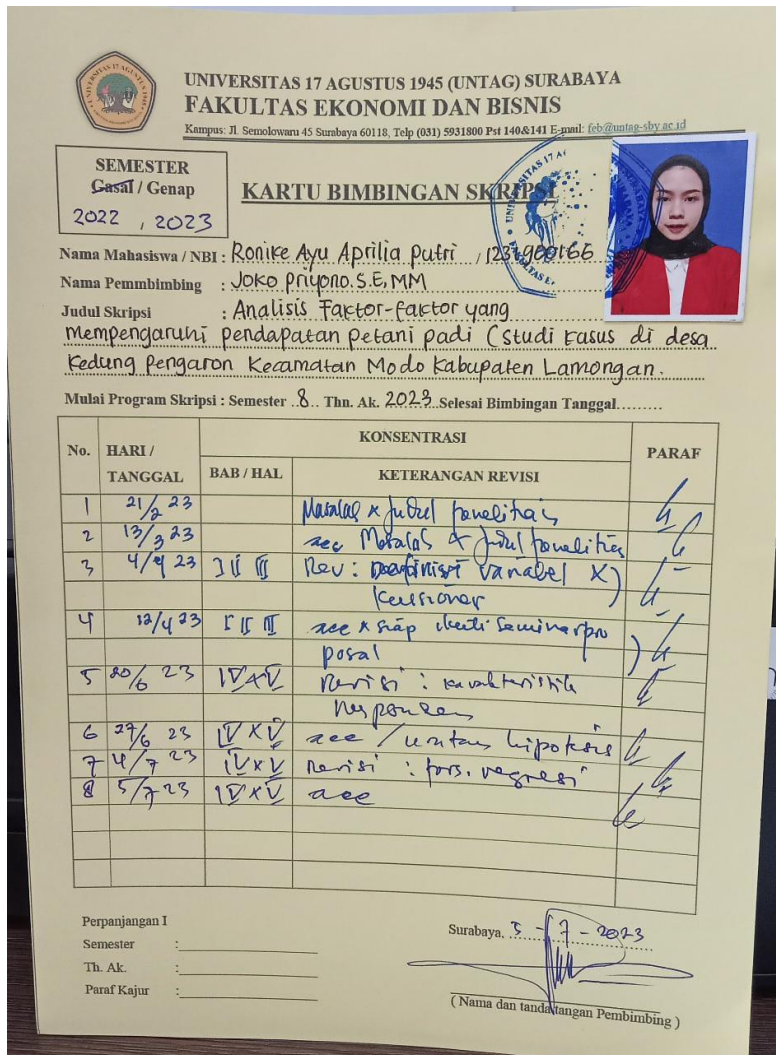 UNIVERSITAS 17 AGUSTUS 1945 (UNTAG) SURABAYA
FAKULTAS EKONOMI DAN BISNIS
Kampus: Jl. Semolowaru 45 Surabaya 60118, Telp (031) 5931800 Pst 140&141 E-mail: feb@untag-sby.ac.id
SEMESTER
Gasal / Genap
2022 , 2023
KARTU BIMBINGAN SKRIPSI
Nama Mahasiswa / NBI : Ronike Ayu Aprilia Putri
Nama Pemmbimbing : Joko Priyono.S.E,MM
Judul Skripsi : Analisis Faktor-faktor yang
mempengaruhi pendapatan petani padi (studi kasus di desa
Kedung pengaron Kecamatan Modo Kabupaten Lamongan.
Mulai Program Skripsi : Semester 8 Thn. Ak. 2023 Selesai Bimbingan Tanggal
No. HARI / TANGGAL KONSENTRASI PARAF
BAB / HAL KETERANGAN REVISI
1 21/2 23 Masalah & Judul penelitian
2 13/3 23 acc Masalah & Judul penelitian
3 4/4 23 I II III Rev : variabel
4 12/4 23 I II III acc & siap ikuti Seminar pro
posal
5 20/6 23 IV & V Revisi : karakteristik
Responden
6 27/6 23 IV & V acc / hipotesis
7 4/7 23 IV & V Revisi : pers. regresi
8 5/7 23 IV & V acc
Perpanjangan I
Semester :
Th. Ak. :
Paraf Kajur :
Surabaya, 5 - 7 - 2023
( Nama dan tanda tangan Pembimbing )